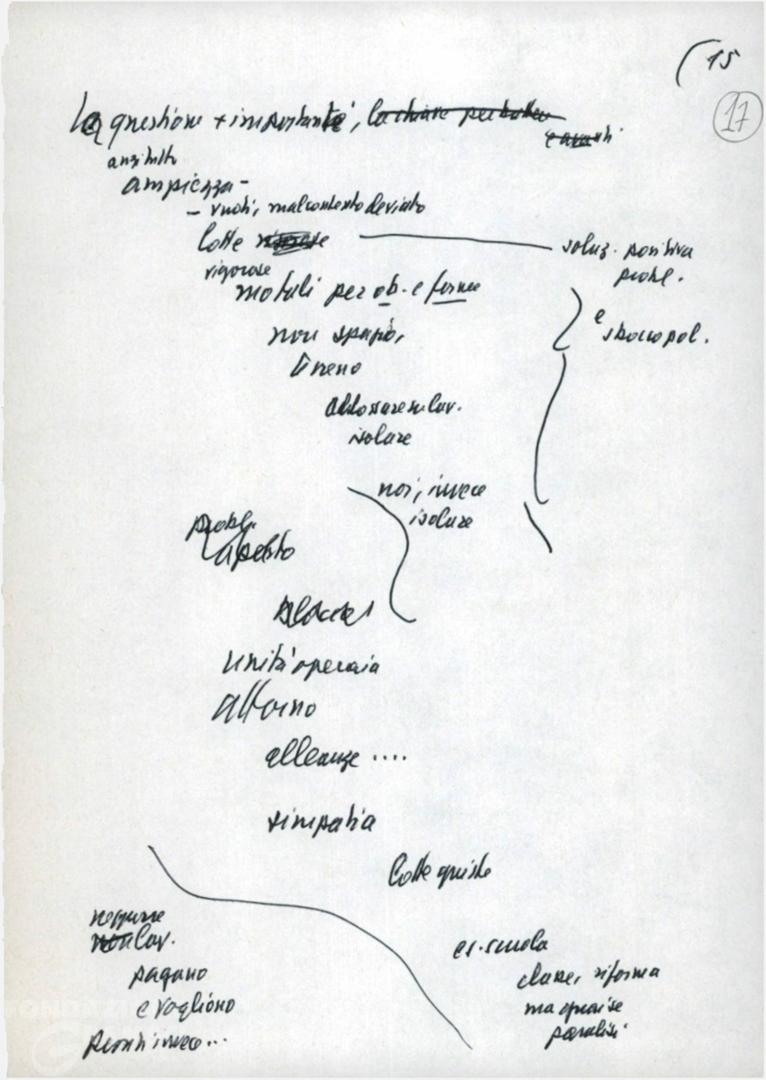 (15
17
La questione + importante, la chiave per
e avanti
anzitutto
ampiezza -
- vuoti, malcontento deviato
lotte
soluz. positiva
probl.
rigorose
mobili per ob. e forme
e
sbocco pol.
non spario,
treno
addossare su lav.
isolare
noi, invece
isolare
probl.
aperto
unità operaia
attorno
alleanze ....
simpatia
lotte giuste
neppure
non lav.
es. scuola
pagano
classe, riforma
e vogliono
ma qua
paralisi
pronti invece...
FONDAZI